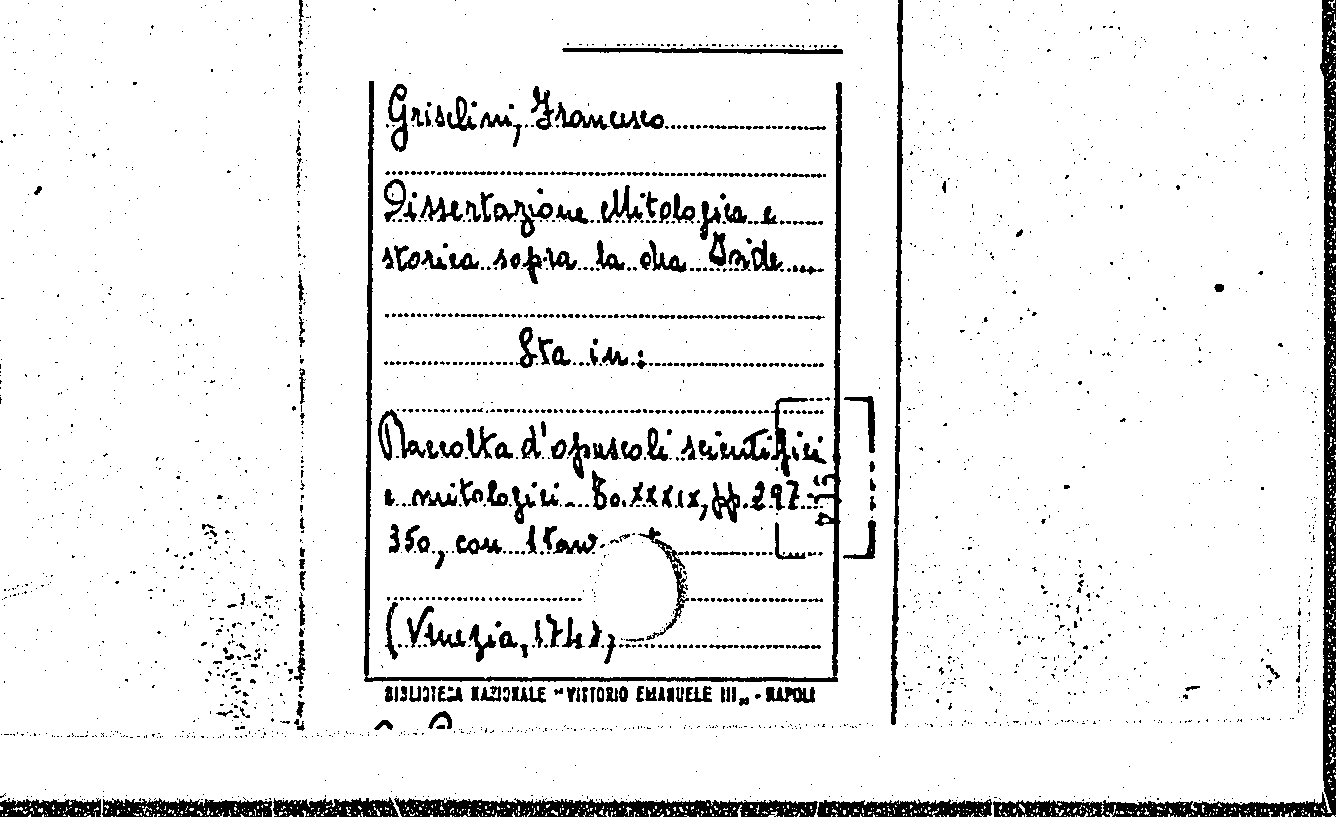 Griselini, Francesco
Dissertazione Mitologica e
storica sopra la dea Iside ...
Sta in:
Raccolta d'opuscoli scientifici
e mitologici. To. XXXIX, pp. 297-
350, con 1 tav.
(Venezia, 1748)
BIBLIOTECA NAZIONALE "VITTORIO EMANUELE III„ - NAPOLI